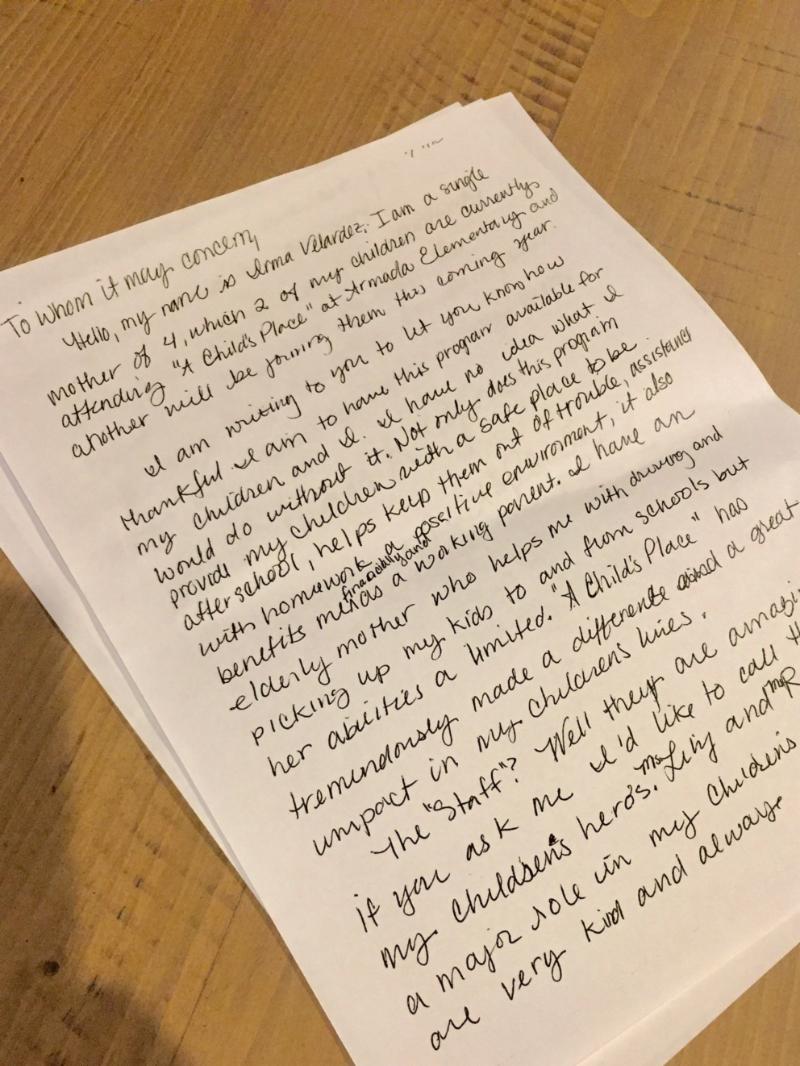 To whom it may concern,
Hello, my name is Irma Velardez. I am a single
mother of 4, which 2 of my children are currently
attending "A Child's Place" at Armada Elementary and
another will be joining them this coming year.
I am writing to you to let you know how
thankful I am to have this program available for
my children and I. I have no idea what I
would do without it. Not only does this program
provide my children with a safe place to be
afterschool, helps keep them out of trouble, assistence
with homework a possitive environment, it also
financially and
benefits me as a working parent. I have an
elderly mother who helps me with driving and
picking up my kids to and from schools but
her abilities a limited. "A Child's Place" has
tremendously made a difference and a great
impact in my children's lives.
The "Staff"? Well they are
if you ask me I'd like to call
my children's hero's. Ms Lily and Mr
a major role in my children's
are very kind and always